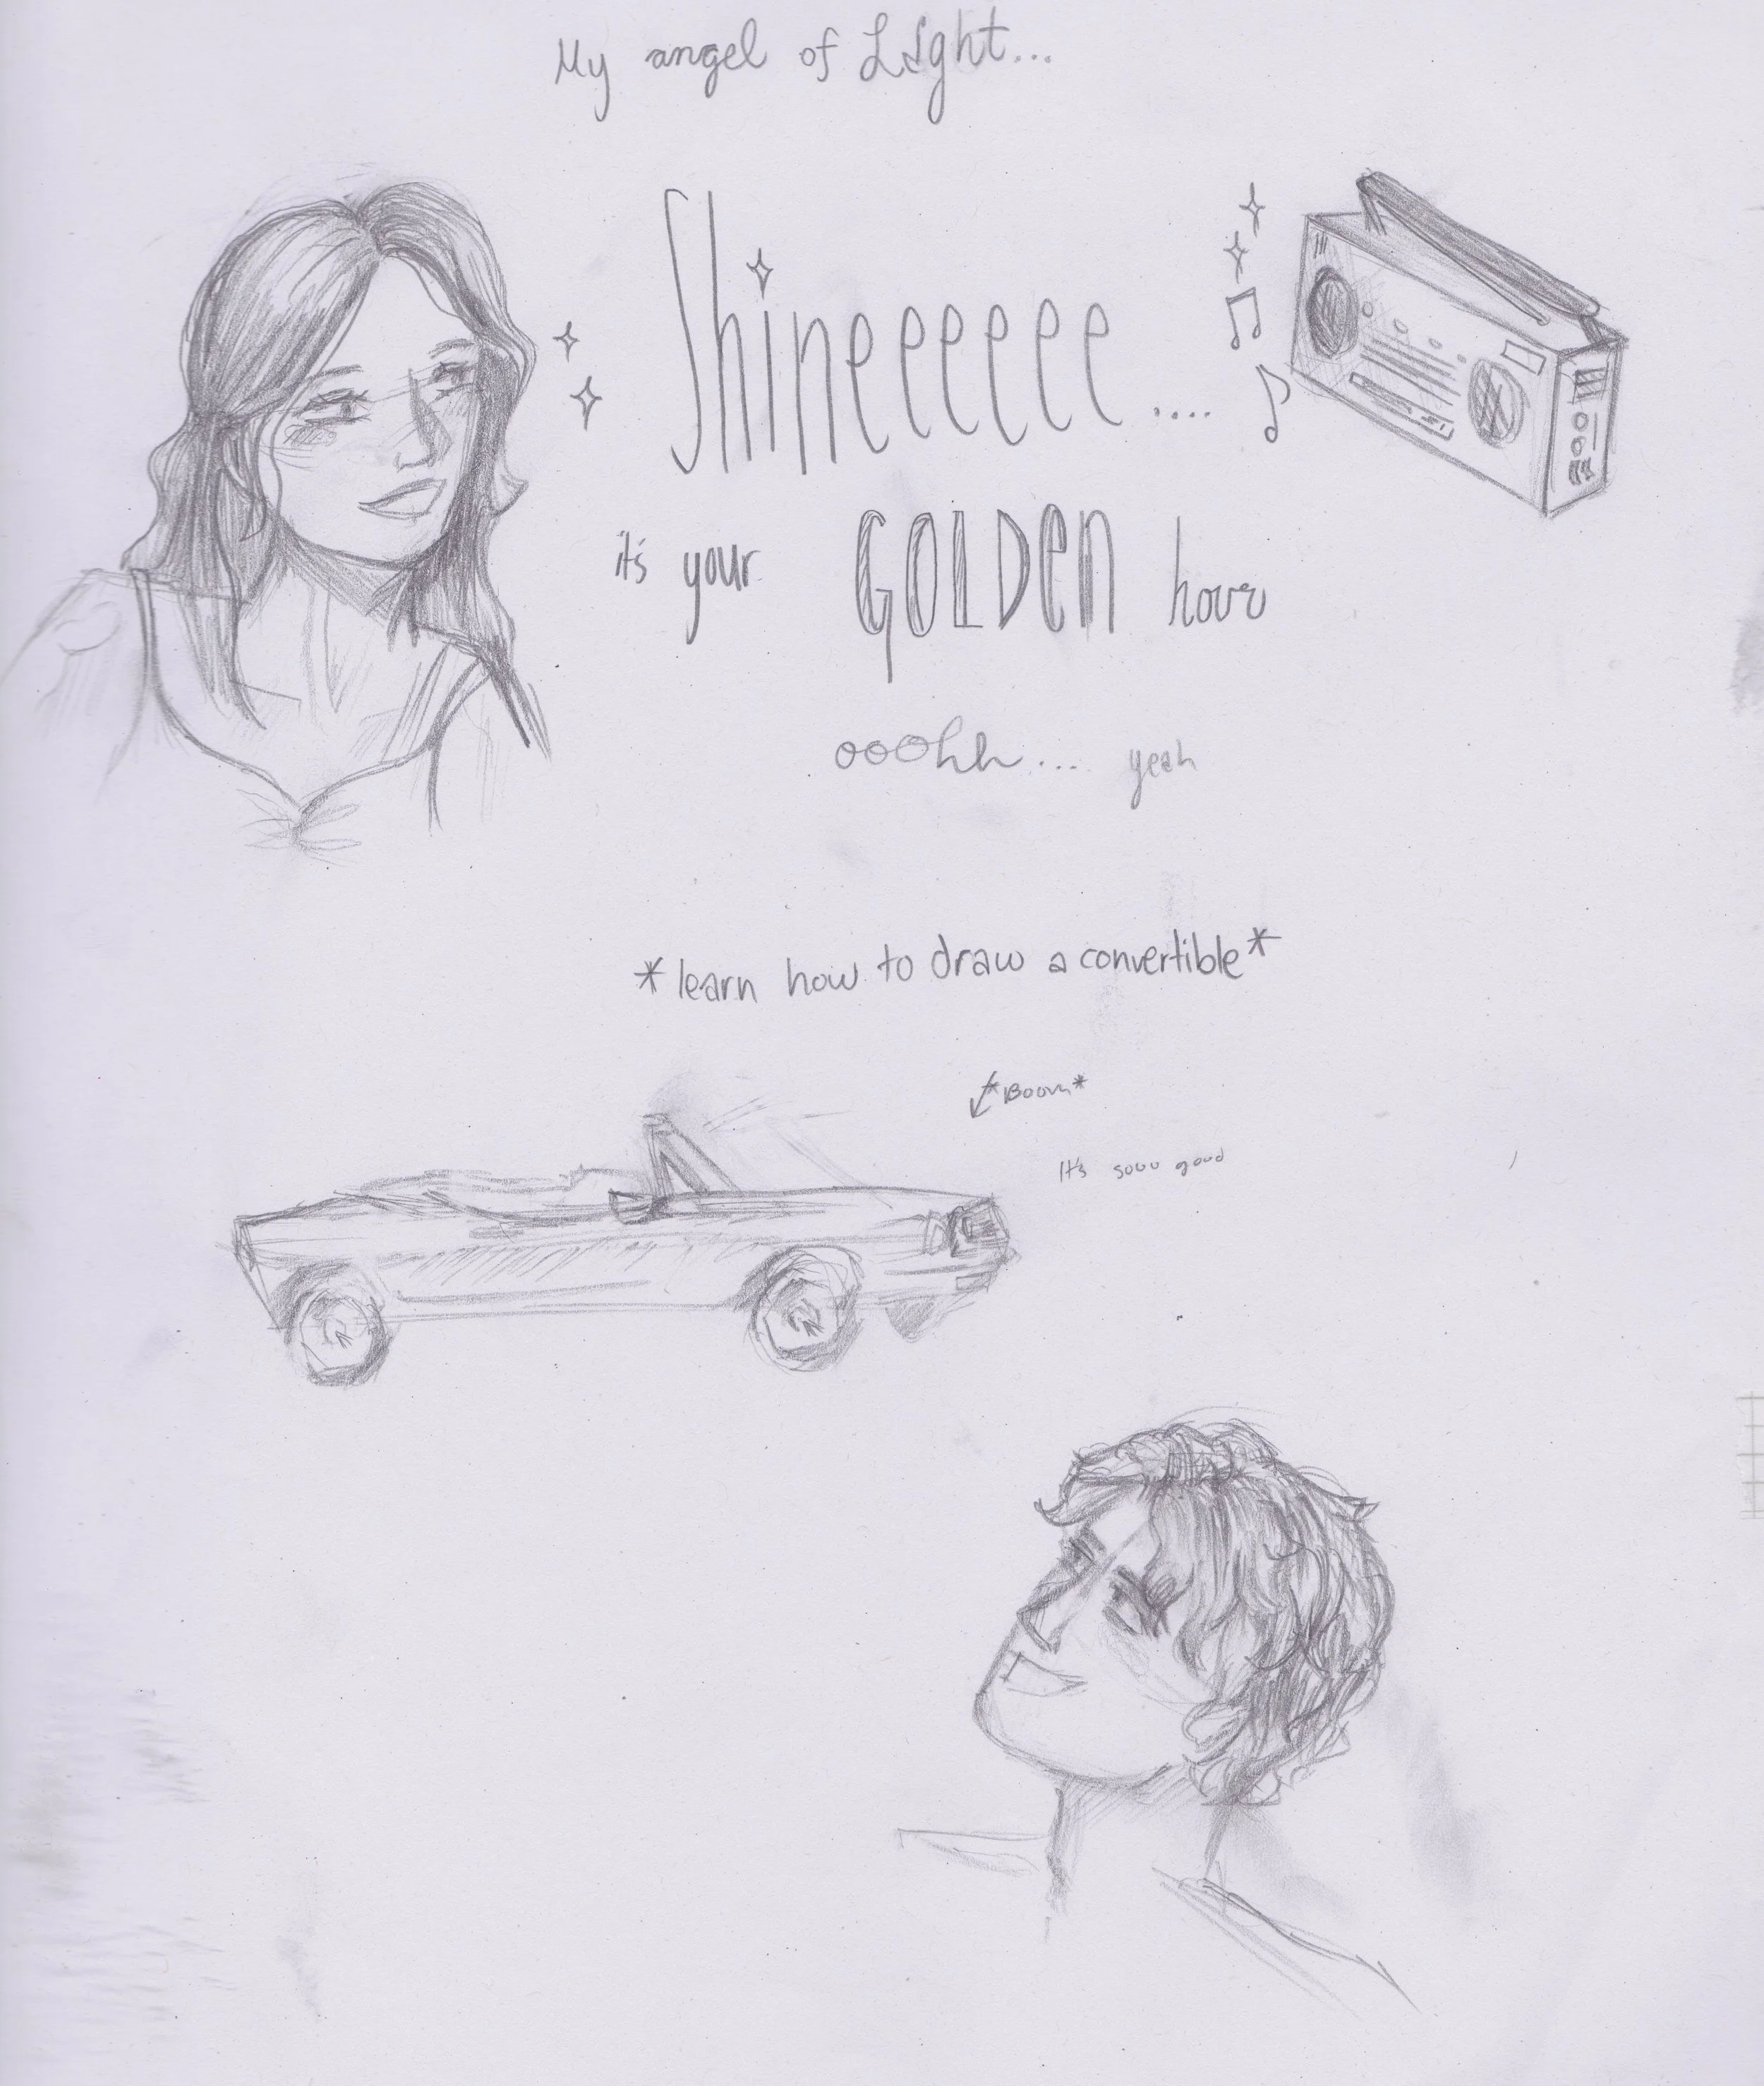 My angel of Light...
Shineeeeee....
it's your GOLDEN hour
ooohh... yeah
*learn how to draw a convertible*
*Boom*
It's sooo good